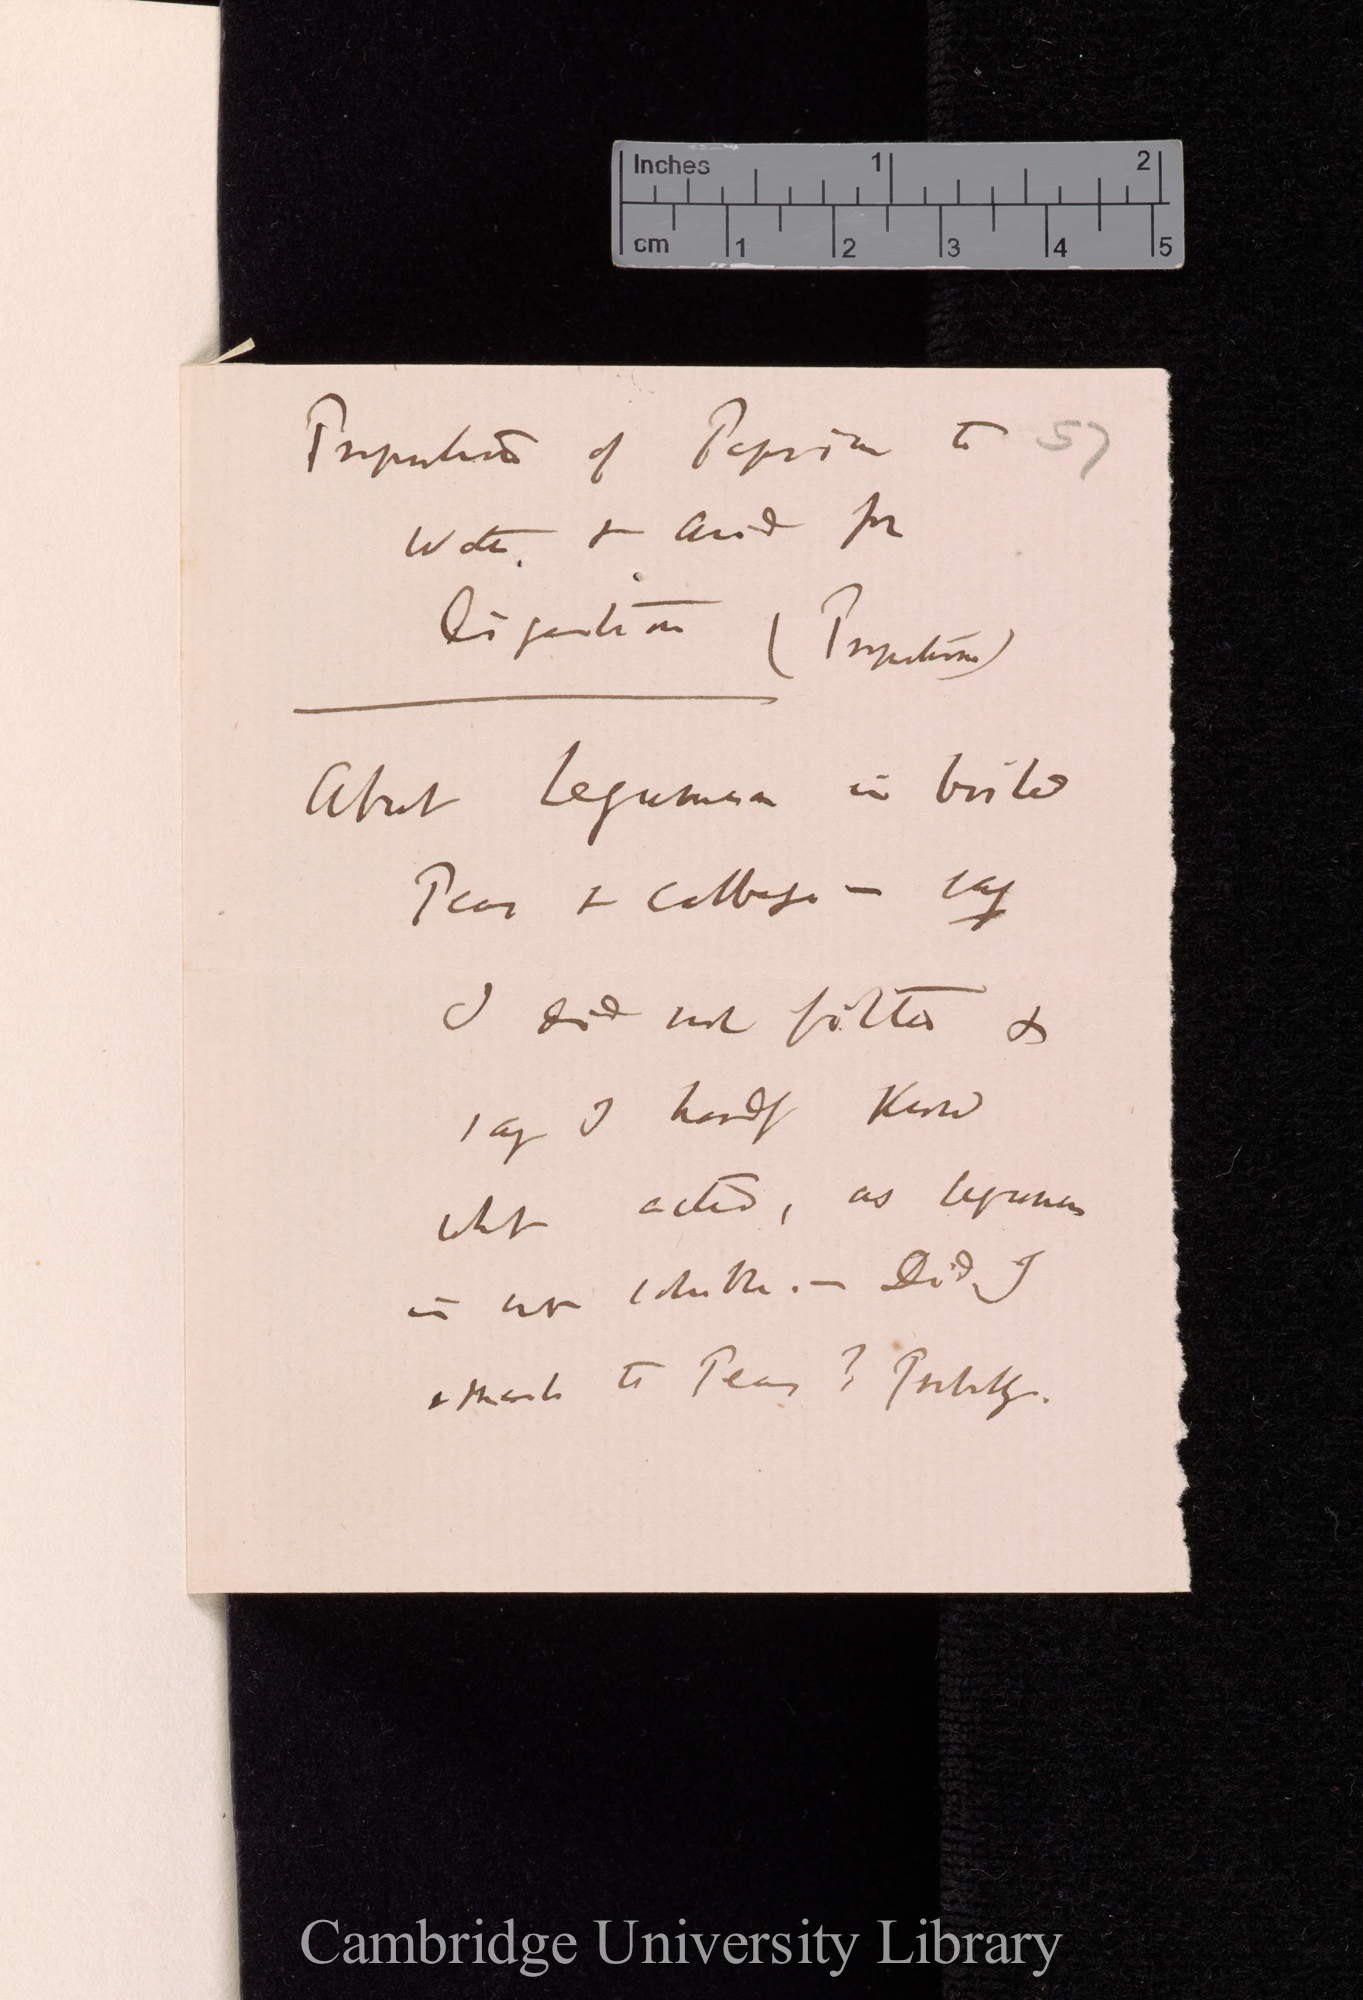 Inches 1 2
cm 1 2 3 4 5
Proportion of Pepsin to 57
Water & acid for
Digestion (Proportion)
About legumen in boiled
Peas & cabbage — say
I did not filter &
say I hardly know
what acted, as legumen
is not soluble. — Did I
to Peas? Probably.
Cambridge University Library